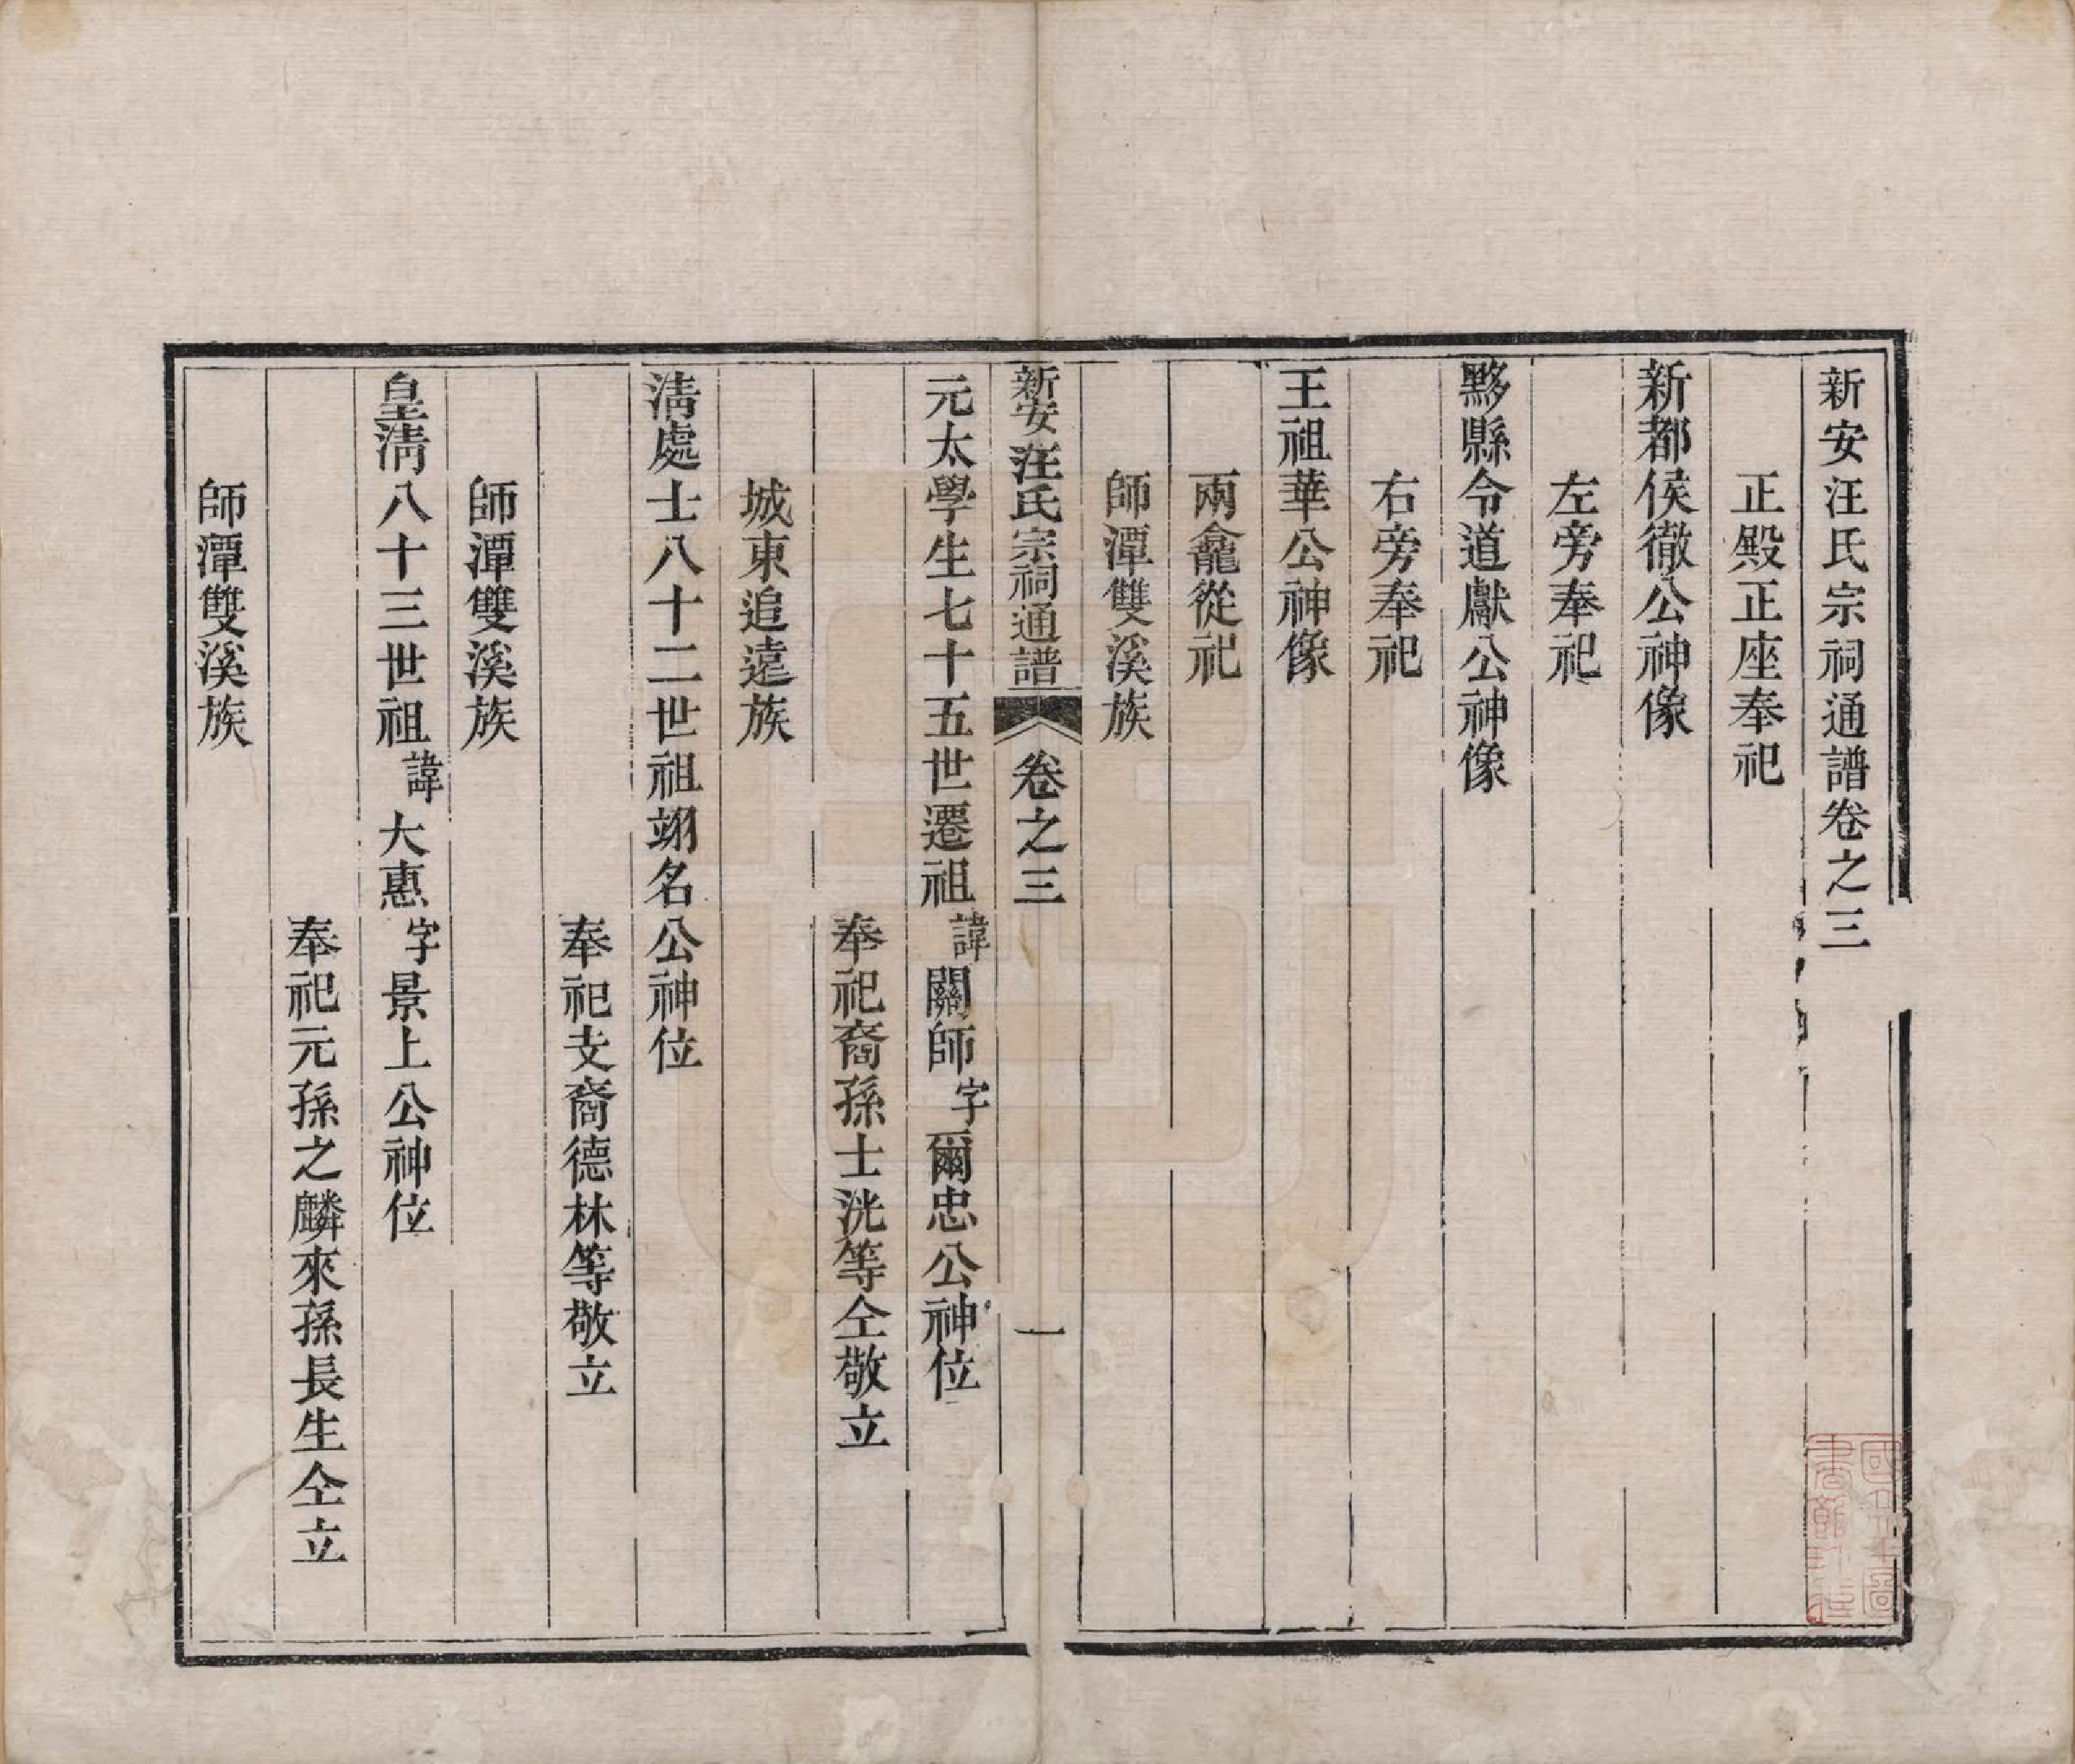 新安汪氏宗祠通譜卷之三
正殿正座奉祀
新都侯徹公神像
左旁奉祀
黟縣令道獻公神像
右旁奉祀
王祖華公神像
兩龕從祀
師潭雙溪族
新安汪氏宗祠通譜 卷之三 一
元太學生七十五世遷祖諱關師字爾忠公神位
奉祀裔孫士洸等仝敬立
城東追遠族
淸處士八十二世祖翊名公神位
奉祀支裔德林等敬立
師潭雙溪族
皇淸八十三世祖諱大惠字景上公神位
奉祀元孫之麟來孫長生仝立
師潭雙溪族